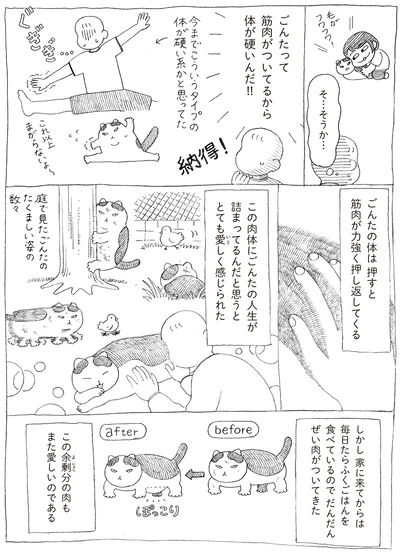 毛が
フワフワ〜
そ…そうか…
ごんたって
筋肉がついてるから
体が硬いんだ!!
納得!
今までこういうタイプの
体が硬い系かと思ってた
ぐぎぎぎ
これ以上
まがらないっすよ〜
ごんたの体は 押すと
筋肉が力強く押し返してくる
この肉体にごんたの人生が
詰まってるんだと思うと
とても愛しく感じられた
いと
庭で見たごんたの
たくましい姿の
数々
しかし 家に来てからは
毎日たらふくごはんを
食べているので だんだん
ぜい肉がついてきた
before
after
ぽっこり
この余剰分の肉も
よじょう
また愛しいのである